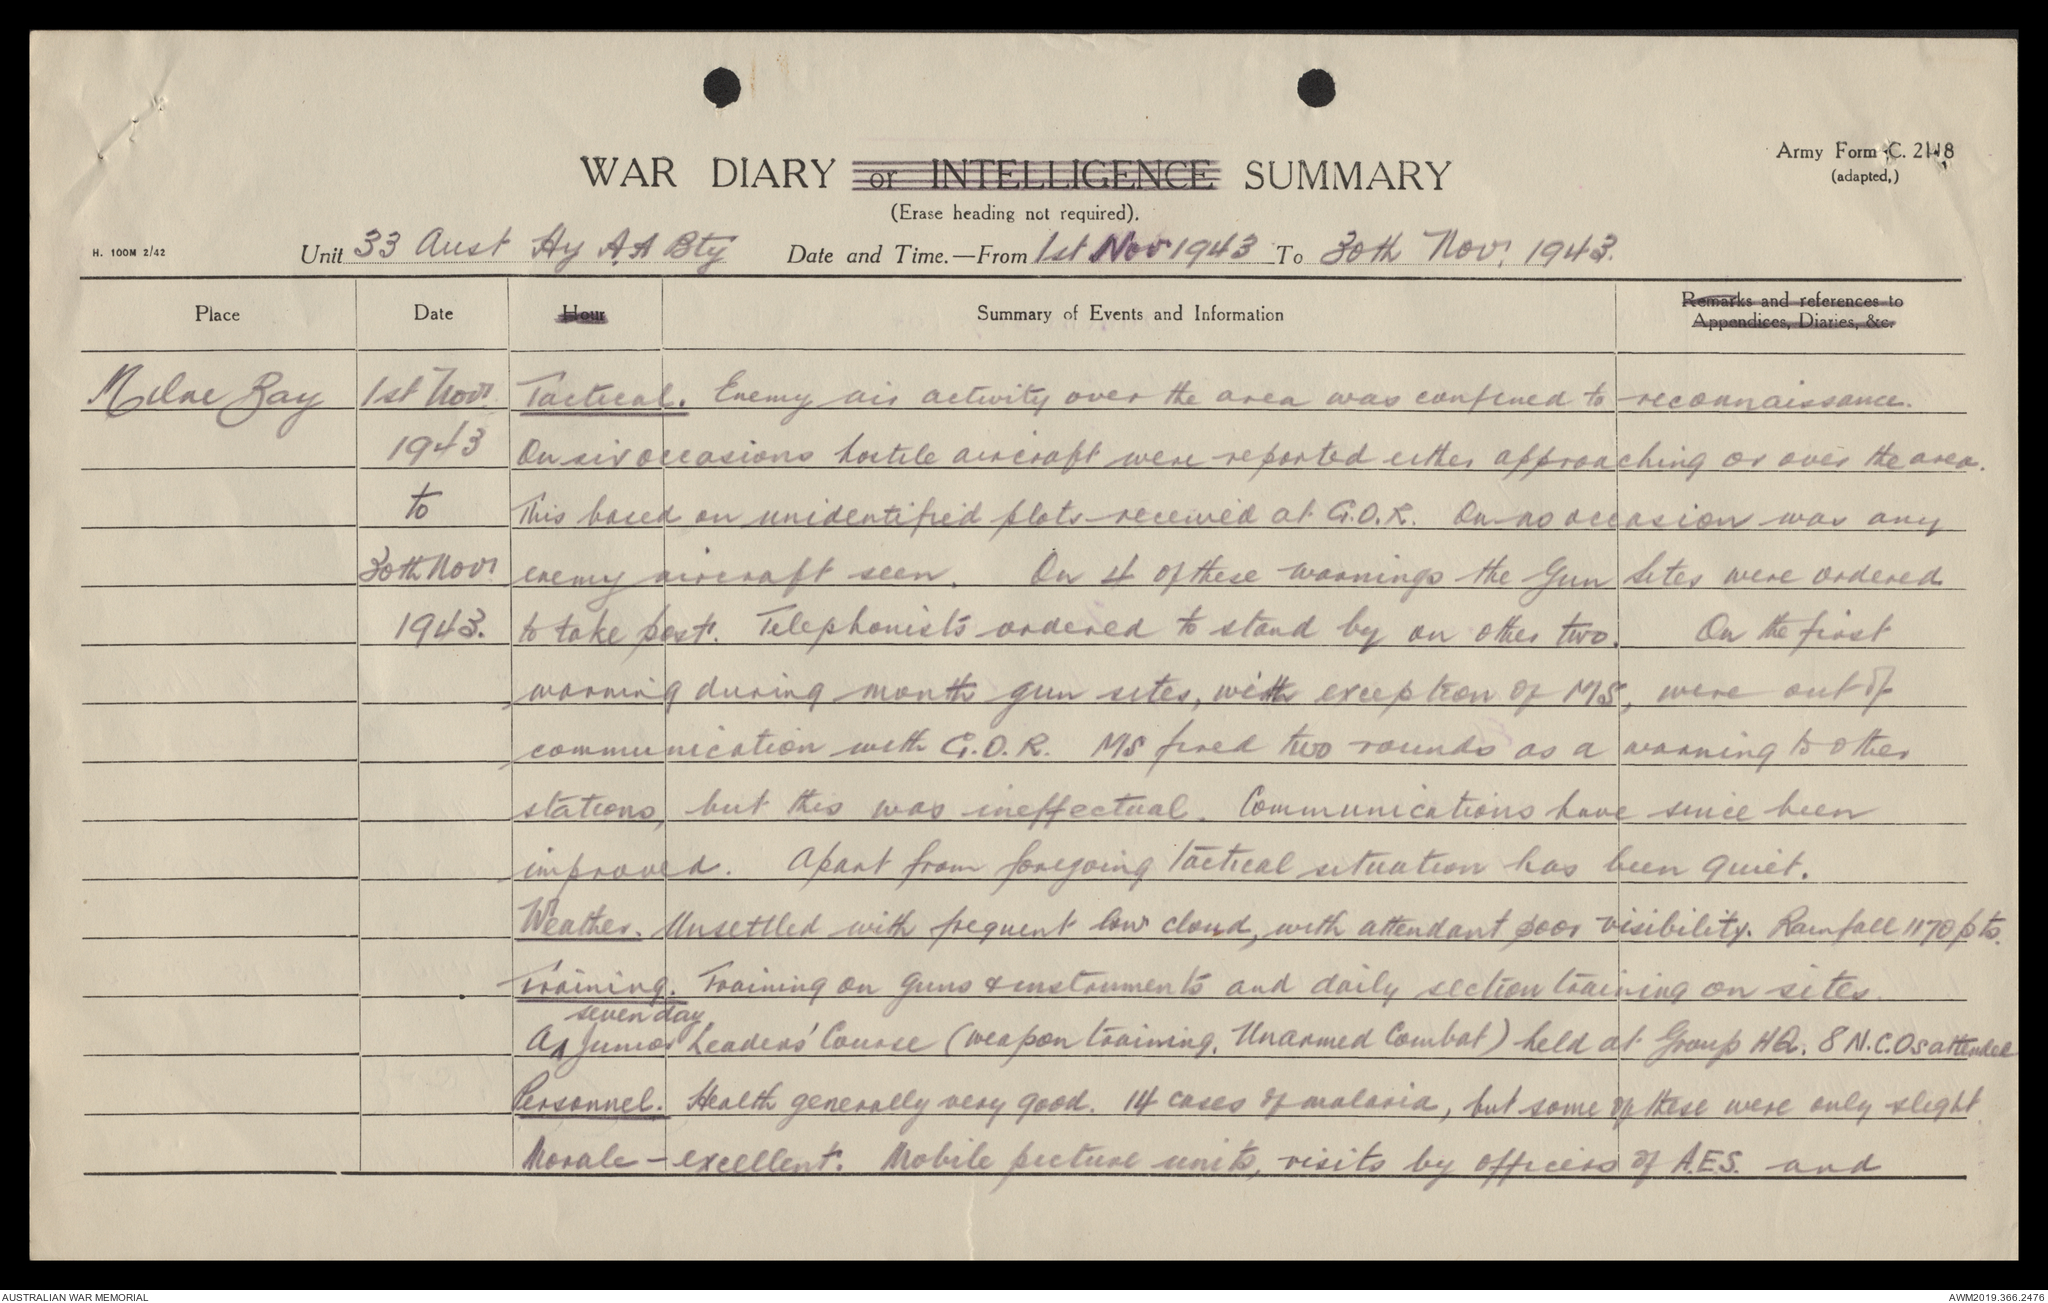 WAR DIARY or INTELLIGENCE SUMMARY
Army Form C. 2118
(adapted,)
(Erase heading not required).
H. 100M 2/42
Unit 33 Aust Hy A.A Bty Date and Time.—From 1st Nov 1943 To 30th Nov. 1943.
Place Date Hour Summary of Events and Information Remarks and references to
Appendices, Diaries, &c.
Milne Bay 1st Nov. Tactical. Enemy air activity over the area was confined to reconnaissance.
1943 On six occasions hostile aircraft were reported either approaching or over the area.
to This based on unidentified plots received at G.O.R. On no occasion was any
30th Nov. enemy aircraft seen. On 4 of these warnings the Gun Sites were ordered
1943. to take post. Telephonists ordered to stand by on other two. On the first
warning during month gun sites, with exception of MS, were out of
communication with G.O.R. MS fired two rounds as a warning to other
stations, but this was ineffectual. Communications have since been
improved. Apart from foregoing tactical situation has been quiet.
Weather. Unsettled with frequent low cloud, with attendant poor visibility. Rainfall 1170 pts.
Training. Training on guns & instruments and daily section training on sites.
seven day
A Junior Leaders' Course (weapon training, Unarmed Combat) held at Group HQ. 8 N.C.Os attended
Personnel. Health generally very good. 14 cases of malaria, but some of these were only slight.
Morale – excellent. Mobile picture units, visits by officers of A.E.S. and
AUSTRALIAN WAR MEMORIAL
AWM2019.366.2476